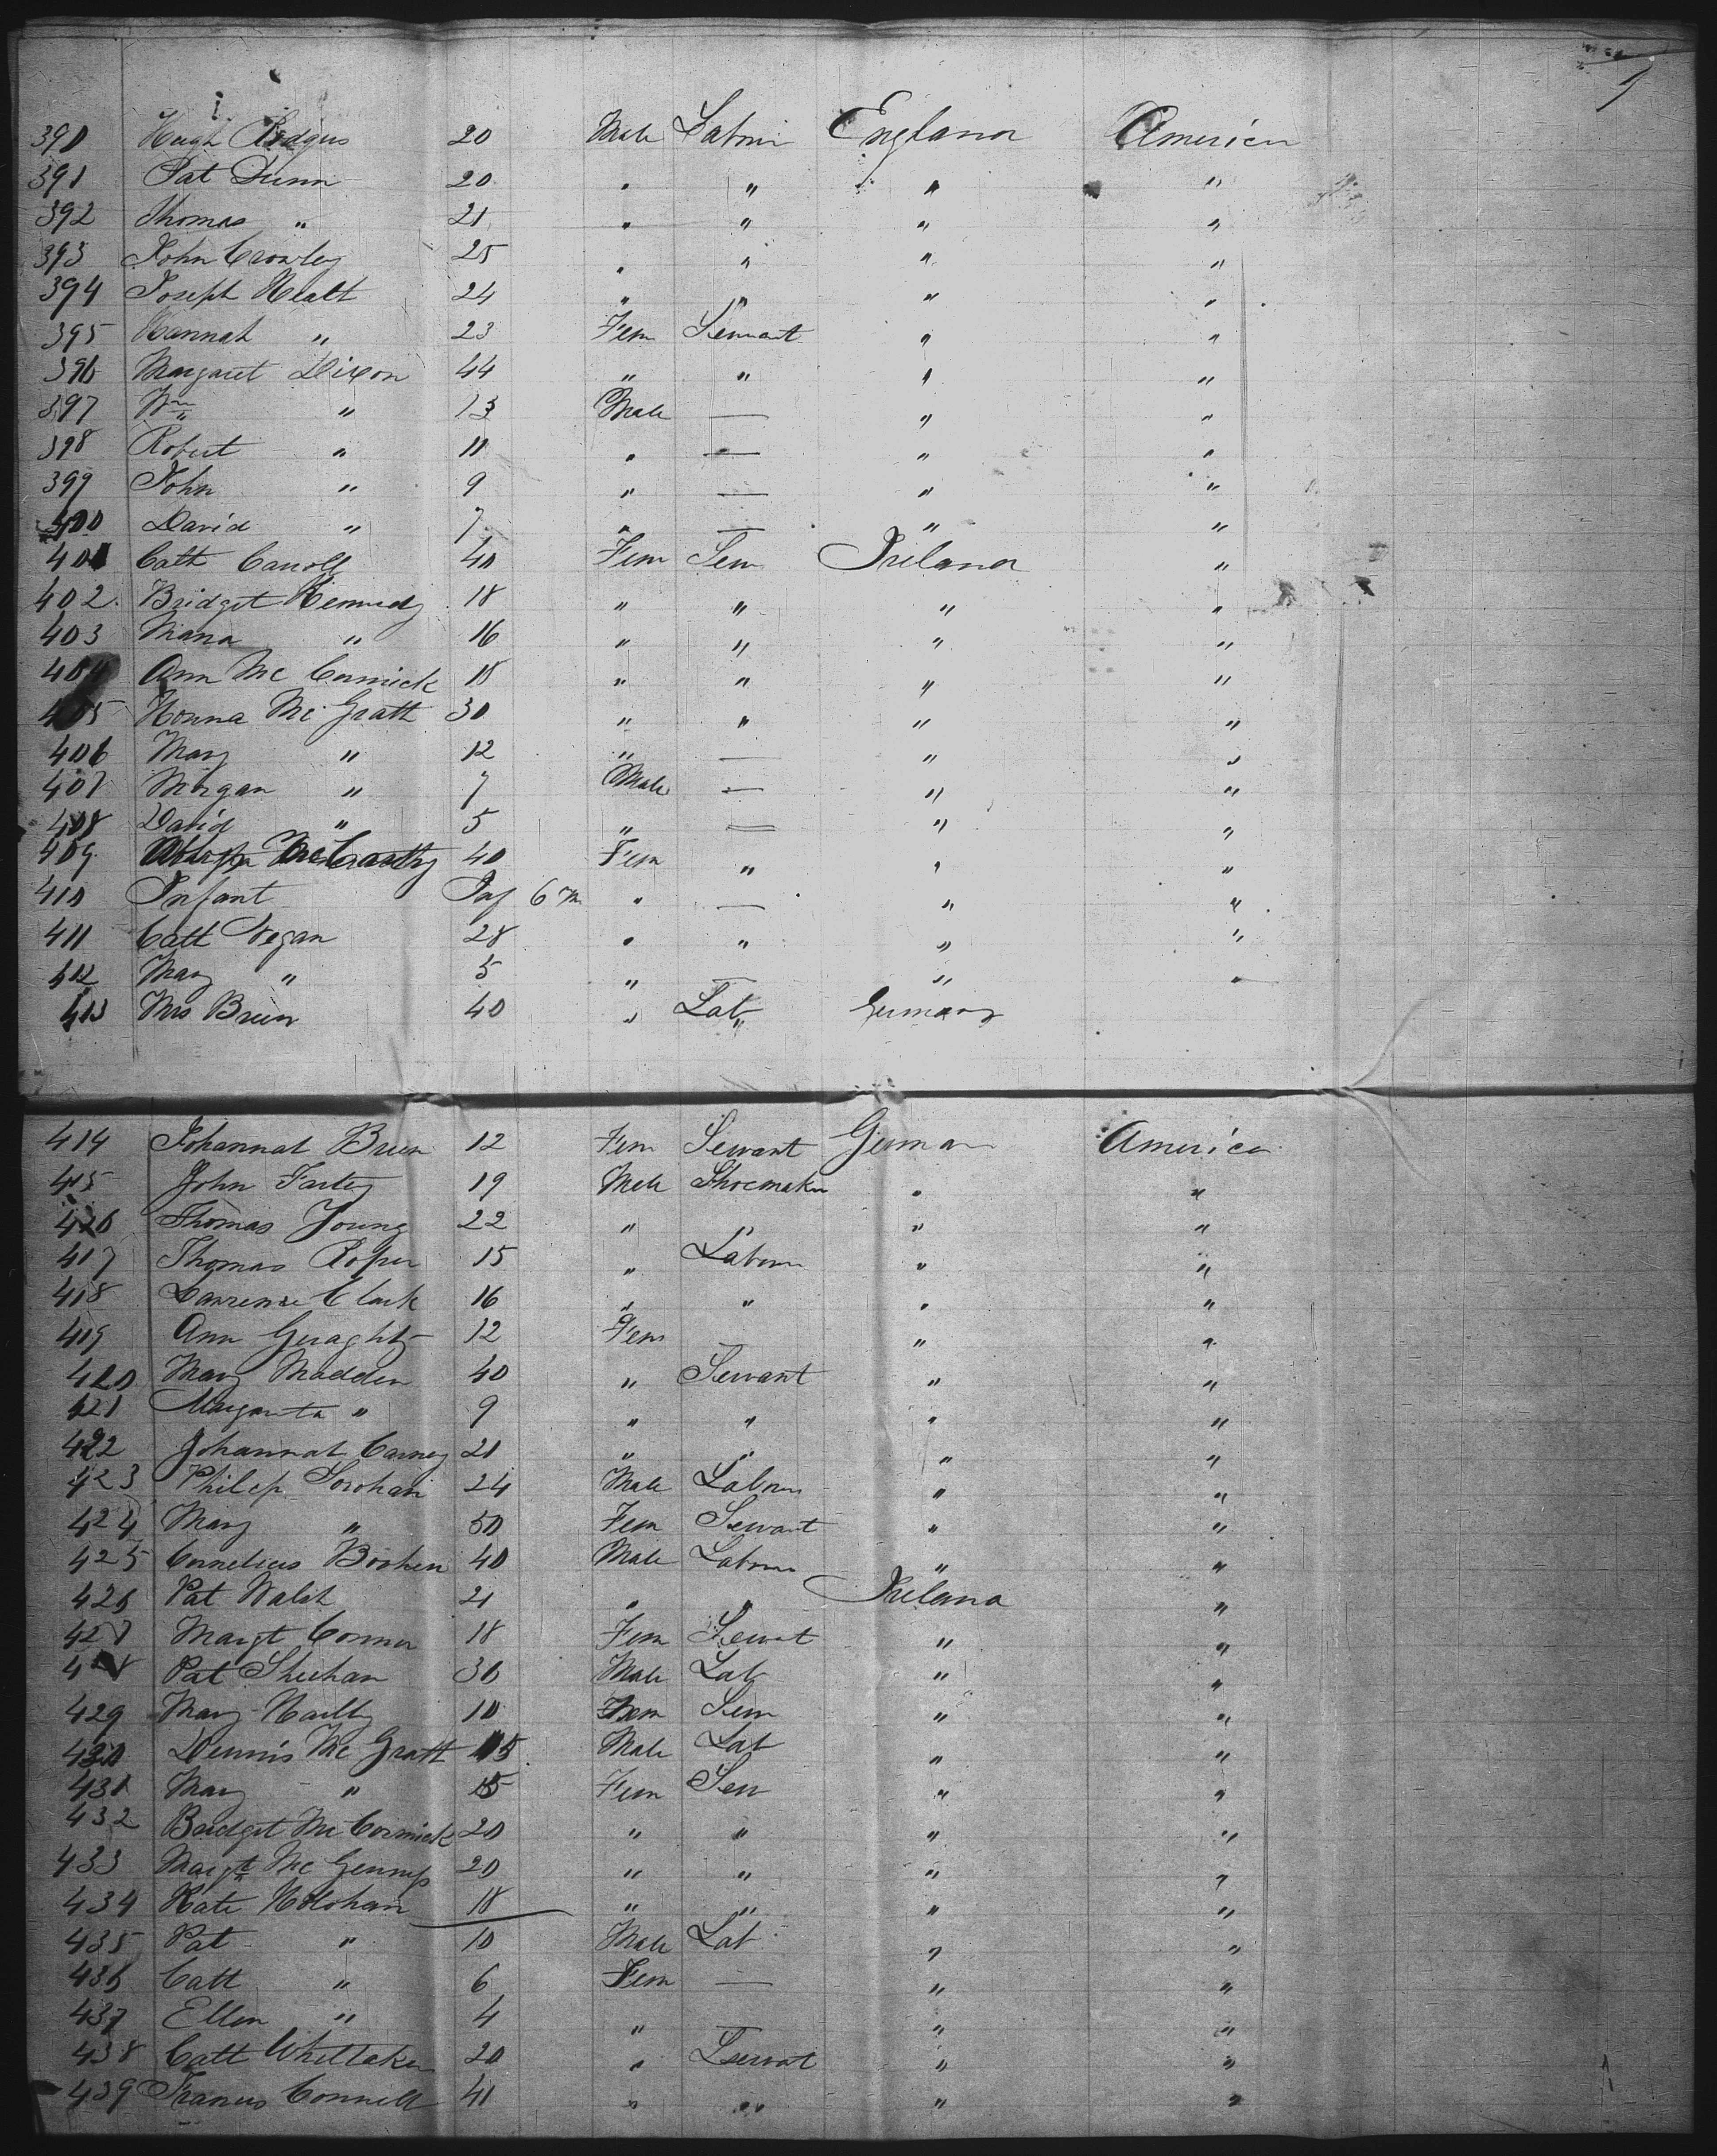 390 Hugh Rodgers 20 Male Labour England America
391 Pat Dunn 20 " " " "
392 Thomas " 21 " " " "
393 John Crowley 25 " " " "
394 Joseph Healt 24 " " " "
395 Hannah " 23 Fem Servant " "
396 Margaret Dixon 44 " " " "
397 Wm " 13 Male — " "
398 Robert " 11 " — " "
399 John " 9 " — " "
400 David " 7 " — " "
401 Cath Carroll 40 Fem Serv Ireland "
402 Bridget Kennedy 18 " " " "
403 " 16 " " " "
404 Ann Mc Cormick 18 " " " "
405 Honna Mc Grath 30 " " " "
406 Mary " 12 " — " "
407 Morgan " 7 Male — " "
408 David " 5 " — " "
409 McCarthy 40 Fem " " "
410 Infant Inf 6 m " — " "
411 Cath 28 " " " "
412 Mary " 5 " — " "
413 Mrs Breen 40 " Lab " Germany
414 Johannah Breen 12 Fem Servant German America
415 John Farley 19 Male Shoemaker " "
416 Thomas Young 22 " " " "
417 Thomas Roper 15 " Labour " "
418 Lawrence Clark 16 " " " "
419 Ann Geraghty 12 Fem — " "
420 Mary Madden 40 " Servant " "
421 Margareta " 9 " " " "
422 Johannah Carney 21 " " " "
423 Philep Sorohan 24 Male Labour " "
424 Mary " 50 Fem Servant " "
425 Cornelius 40 Male Labour " "
426 Pat Walsh 21 " " Ireland "
427 Margt Connor 18 Fem Servat " "
428 Pat Sheehan 36 Male Lab " "
429 Mary 10 Fem Serv " "
430 Dennis Mc Grath 15 Male Lab " "
431 Mary " 15 Fem Serv " "
432 Bridget Mc Cormick 20 " " " "
433 Margt Mc 20 " " " "
434 Kate Holohan 18 " " " "
435 Pat " 10 Male Lab " "
436 Cath " 6 Fem — " "
437 Ellen " 4 " — " "
438 Cath Whittaker 20 " Servat " "
439 Francis Connell 41 " " " "